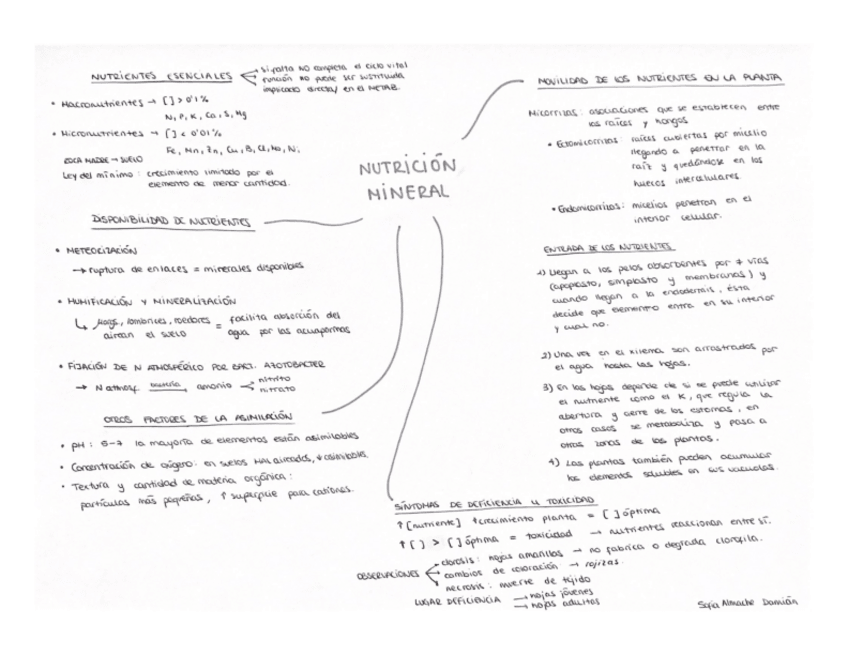 NUTRICIÓN
MINERAL
NUTRIENTES ESENCIALES
si falta NO completa el ciclo vital
función NO puede ser sustituida
implicado directa/ en el METAB.
• Macronutrientes → [ ] > 0'1%
N, P, K, Ca, S, Mg
• Micronutrientes → [ ] < 0'01%
Fe, Mn, Zn, Cu, B, Cl, Mo, Ni
ROCA MADRE → SUELO
Ley del mínimo : crecimiento limitado por el
elemento de menor cantidad.
DISPONIBILIDAD DE NUTRIENTES
• METEORIZACIÓN
→ ruptura de enlaces = minerales disponibles
• HUMIFICACIÓN Y MINERALIZACIÓN
↳ lombrices, roedores = facilita absorción del
airean el suelo agua por las acuaporinas
• FIJACIÓN DE N ATMOSFÉRICO POR BACT. AZOTOBACTER
→ N atmosf. amonio nitrito
nitrato
OTROS FACTORES DE LA ASIMILACIÓN
• pH : 5-7 la mayoría de elementos están asimilables
• Concentración de oxígeno: en suelos MAL aireados, ↓ asimilables.
• Textura y cantidad de materia orgánica :
partículas más pequeñas, ↑ superficie para cationes.
MOVILIDAD DE LOS NUTRIENTES EN LA PLANTA
Micorrizas : asociaciones que se establecen entre
las raíces y hongos.
• Ectomicorrizas : raíces cubiertas por micelio
llegando a penetrar en la
raíz y quedándose en los
huecos intercelulares.
• Endomicorrizas : micelios penetran en el
interior celular.
ENTRADA DE LOS NUTRIENTES
1) Llegan a los pelos absorbentes por ≠ vías
(apoplasto, simplasto y membranas) y
cuando llegan a la endodermis, ésta
decide que elemento entra en su interior
y cual no.
2) Una vez en el xilema son arrastrados por
el agua hasta las hojas.
3) En las hojas depende de si se puede utilizar
el nutriente como el K, que regula la
abertura y cierre de los estomas, en
otros casos se metaboliza y pasa a
otras zonas de las plantas.
4) Las plantas también pueden acumular
los elementos solubles en sus vacuolas.
SÍNTOMAS DE DEFICIENCIA Y TOXICIDAD
↑ [nutriente] ↑ crecimiento planta = [ ] óptima
↑ [ ] > [ ] óptima = toxicidad → nutrientes reaccionan entre sí.
OBSERVACIONES
clorosis : hojas amarillas → no fabrica o degrada clorofila.
cambios de coloración → rojizas.
necrosis : muerte de tejido
LUGAR DEFICIENCIA → hojas jóvenes
→ hojas adultas
Sofía Almache Damián